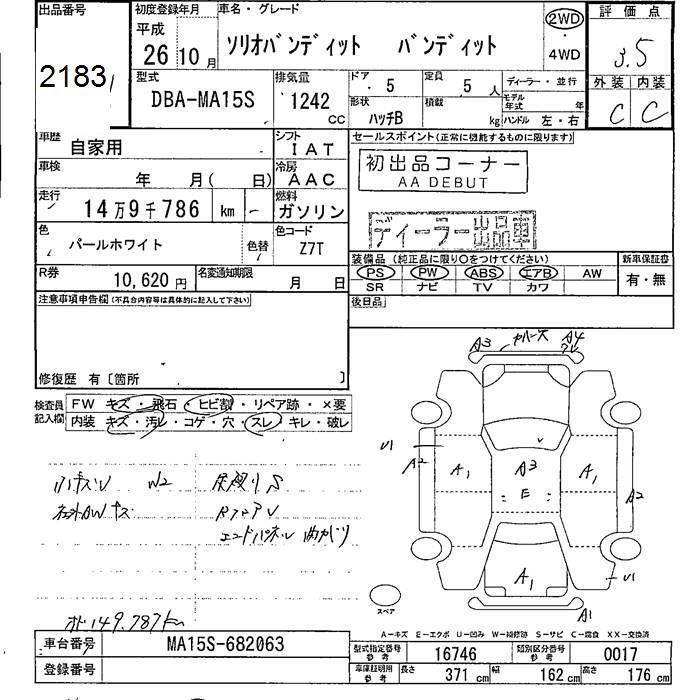 出品番号
2183
初度登録年月
平成
26 10月
車名・グレード
ソリオバンディット バンディット
2WD
・
4WD
評価点
3.5
型式
DBA-MA15S
排気量
1242
CC
ドア
5
定員
5 人
形状
ハッチB
積載
kg
ディーラー・並行
モデル年式 年
ハンドル 左・右
外装 内装
C C
車歴
自家用
シフト
IAT
車検
年 月( 日)
冷房
AAC
走行
14万9千786 km
燃料
ガソリン
色
パールホワイト
色替
色コード
Z7T
R券
10,620円
名変通知期限
月 日
セールスポイント(正常に機能するものに限ります)
初出品コーナー
AA DEBUT
ディーラー出品車
装備品(純正品に限り○をつけてください)
新車保証書
PS PW ABS エアB AW
SR ナビ TV カワ
有・無
後日品
注意事項申告欄(不具合内容等は具体的に記入して下さい)
修復歴 有〔箇所 〕
検査員記入欄
FW キズ・飛石・ヒビ割・リペア跡・×要
内装 キズ・汚れ・コゲ・穴・スレ・キレ・破レ
W2
エンドパネル曲がり
149,787km
A3 A4
U1
A2
A1 A3 A1
E
A2
A1
U1
A1
スペア
A-キズ E-エクボ U-凹み W-補修跡 S-サビ C-腐食 XX-交換済
車台番号
MA15S-682063
登録番号
型式指定番号
参考
16746
類別区分番号
参考
0017
車庫証明用
参考
長さ 371 cm 幅 162 cm 高さ 176 cm